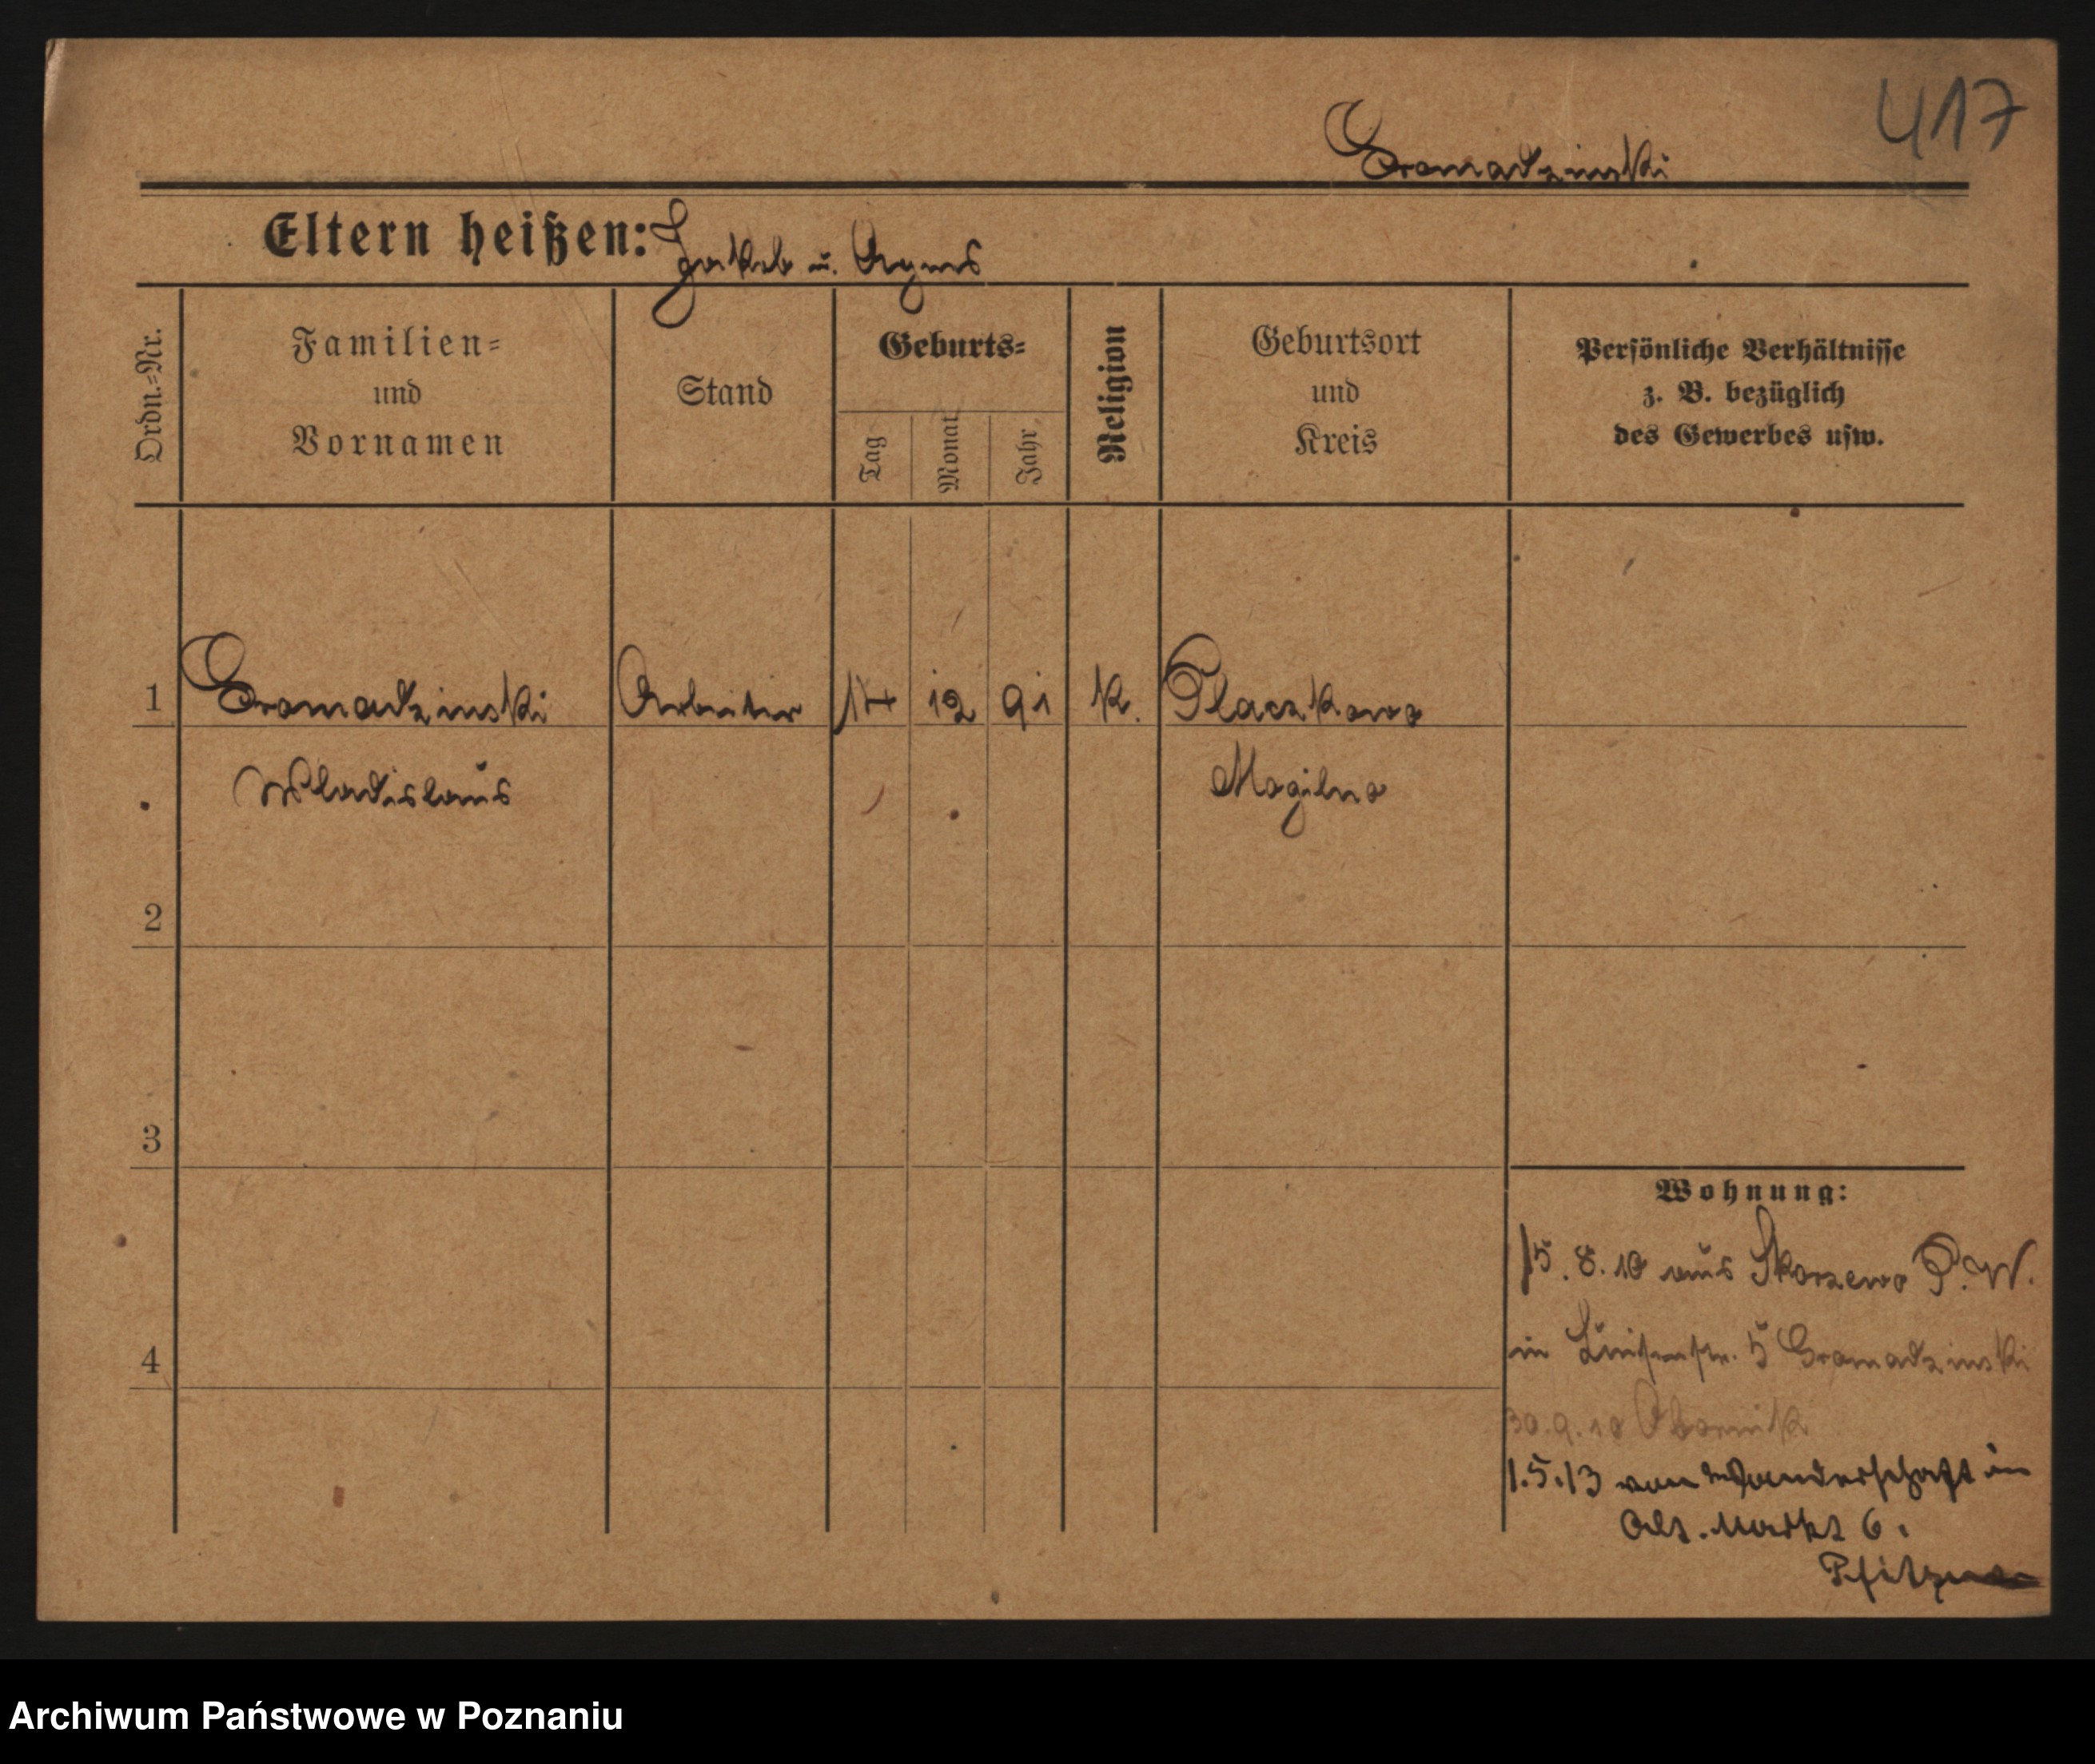 417
Gromadzinski
Eltern heißen: Jakob u. Agnes
Ordn.-Nr.
Familien-
und
Vornamen
Stand
Geburts-
Tag
Monat
Jahr
Religion
Geburtsort
und
Kreis
Persönliche Verhältnisse
z. B. bezüglich
des Gewerbes usw.
1 Gromadzinski Arbeiter 14 12 91 K. Placzkowo
Wladislaus Mogilno
2
3
4
Wohnung:
15.8.10 aus Skorzewo P.W.
in Luisenstr. 5 Gromadzinski
30.9.10 Obornik
1.5.13 von Wanderschaft in
Alt. Markt 6.
Archiwum Państwowe w Poznaniu